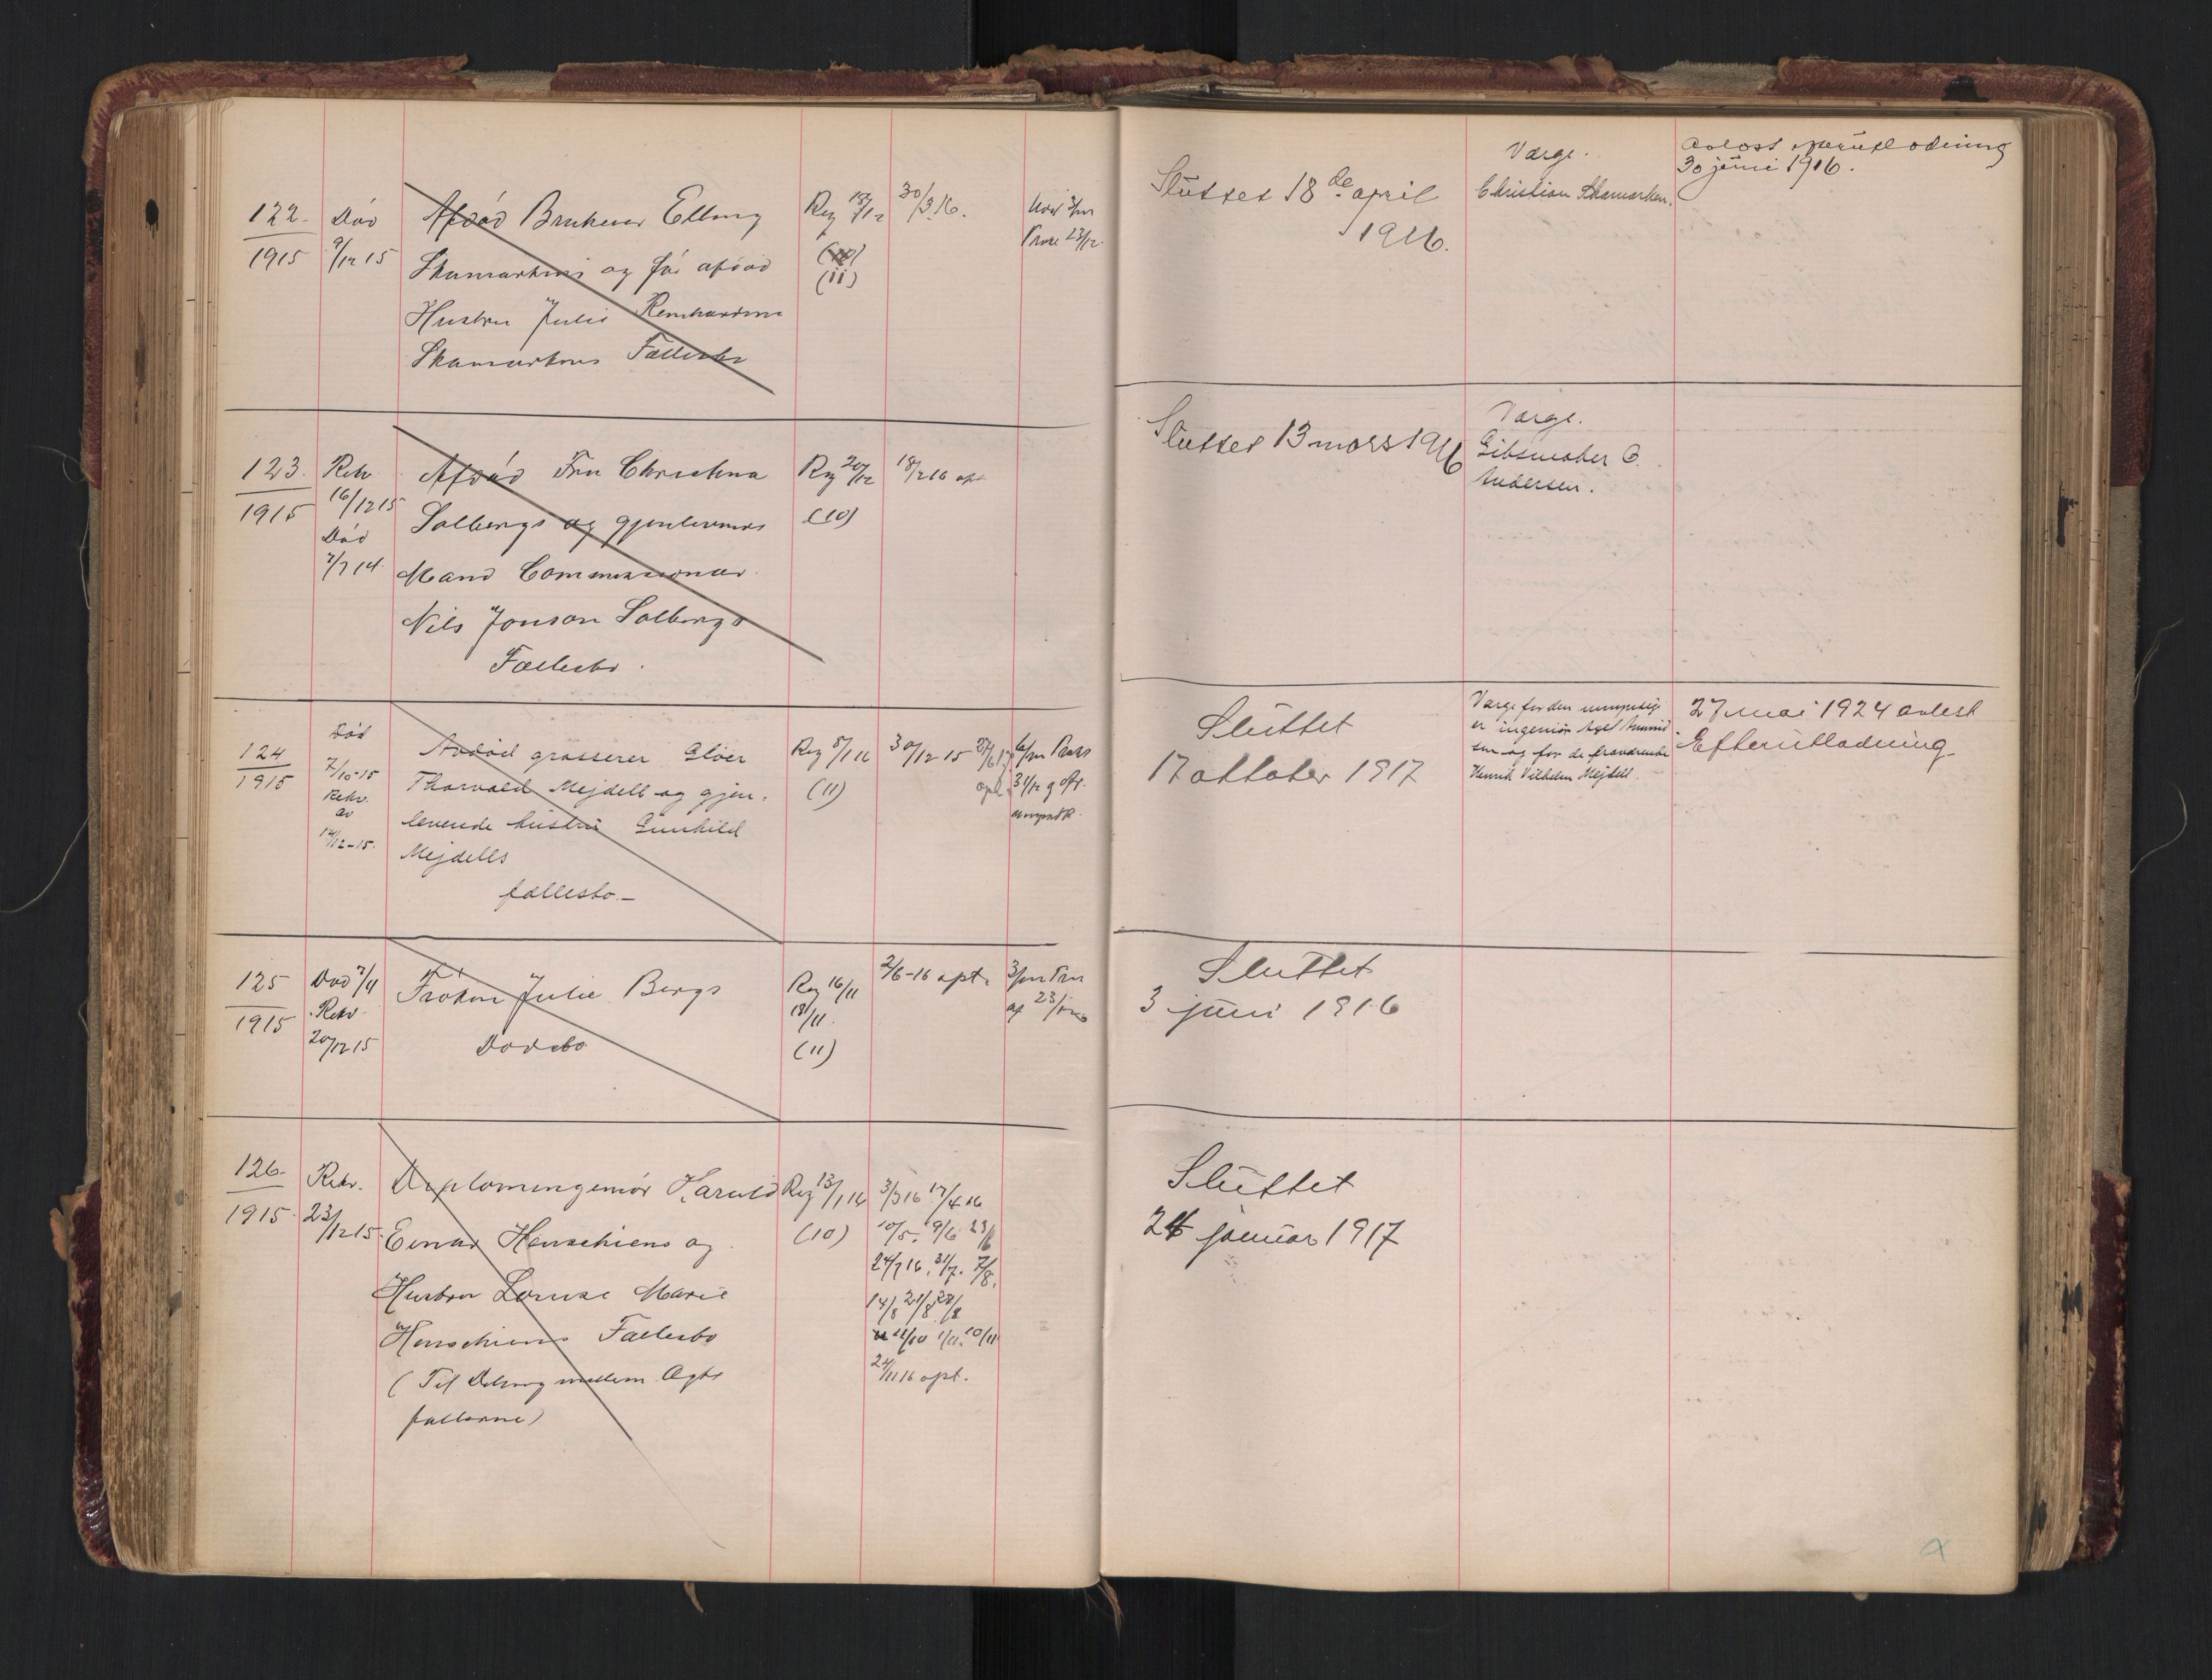 122.
1915
Død
9/12 15
Afdød Bruheier Elling
Skamarkens og før afdød
Hustru Julie Reinhardine
Skamarkens Fællesbo
Reg 18/12
(11)
30/3.16.
Prove 23/12.
Sluttet 18de april
1916.
Værge.
Christian Skamarken.
30 juni 1916.
123.
1915
Rekv.
16/12 15
Død
7/7 14
Afdød Fru Christina
Solbergs og gjenlevendes
Mand Commissionær
Nils Jonson Solbergs
Fællesbo.
Reg 20/12
(10)
18/2 16 opt
Sluttet 13 mars 1916
Værge.
Gibsmaker C.
Andersen.
124
1915
Død
7/10-15
Rekv.
av
14/12-15.
Avdød grosserer Gløer
Thorvald Mejdell og gjen-
levende hustru Gunhild
Mejdells
fællesbo.-
Reg 8/1 16
(11)
30/12-15
opt.
Sluttet
17 oktober 1917
Værge for den umyndige
er ingeniør Axel Amund
sen og for de fraværende
Henrik Vilhelm Mejdell.
27 mai 1924 avlest
Efterutlodning
125
1915
Død 7/11
Rekv.
20/12 15
Frøken Julie Bergs
Dødsbo
Reg 16/11
18/11.
(11)
2/6-16 opt.
Sluttet
3 juni 1916
126.
1915.
Rekv.
23/12 15.
Diplomingeniør Harald
Einar Henschiens og
Hustru Louise Marie
Henschiens Fællesbo
(Til Deling mellem Ægte
fællerne)
Reg 13/1 16
(10)
3/3 16 17/4 16
10/5. 9/6 23/6
24/7 16. 31/7. 7/8.
14/8 21/8 28/8
11/10 1/11. 10/11
24/11 16 opt.
Sluttet
24 januar 1917